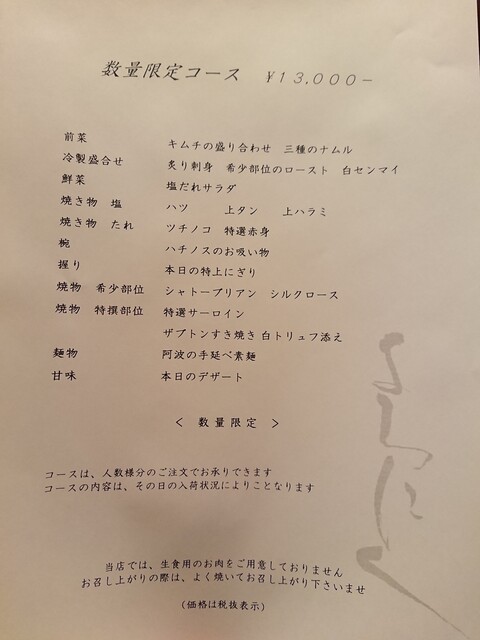 数量限定コース ¥13,000-
前菜 キムチの盛り合わせ 三種のナムル
冷製盛合せ 炙り刺身 希少部位のロースト 白センマイ
鮮菜 塩だれサラダ
焼き物 塩 ハツ 上タン 上ハラミ
焼き物 たれ ツチノコ 特選赤身
椀 ハチノスのお吸い物
握り 本日の特上にぎり
焼物 希少部位 シャトーブリアン シルクロース
焼物 特撰部位 特選サーロイン
ザブトンすき焼き 白トリュフ添え
麺物 阿波の手延べ素麺
甘味 本日のデザート
< 数量限定 >
コースは、人数様分のご注文でお承りできます
コースの内容は、その日の入荷状況によりことなります
当店では、生食用のお肉をご用意しておりません
お召し上がりの際は、よく焼いてお召し上がり下さいませ
(価格は税抜表示)